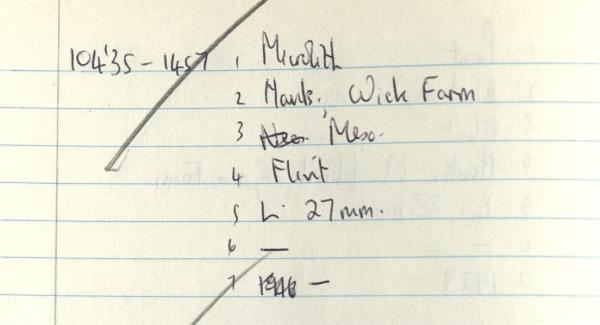 104'35 - 1457 1 Microlith
2 Hants. Wick Farm
3 Meso.
4 Flint
5 L. 27mm.
6 —
7 1946 —